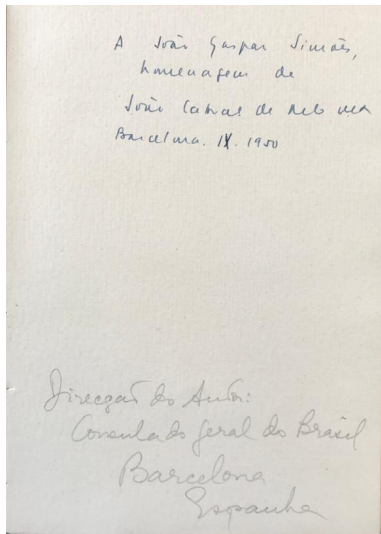 A João Gaspar Simões,
homenagem de
João Cabral de Melo Neto
Barcelona. IX. 1950
Direcção do Autor:
Consulado geral do Brasil
Barcelona
Espanha